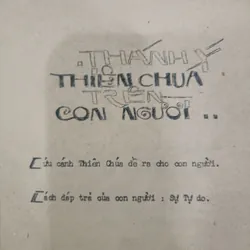 THÁNH Ý
THIÊN CHÚA
TRÊN
CON NGƯỜI ..
Cứu cánh Thiên Chúa đề ra cho con người.
Cách đáp trả của con người : Sự Tự do.